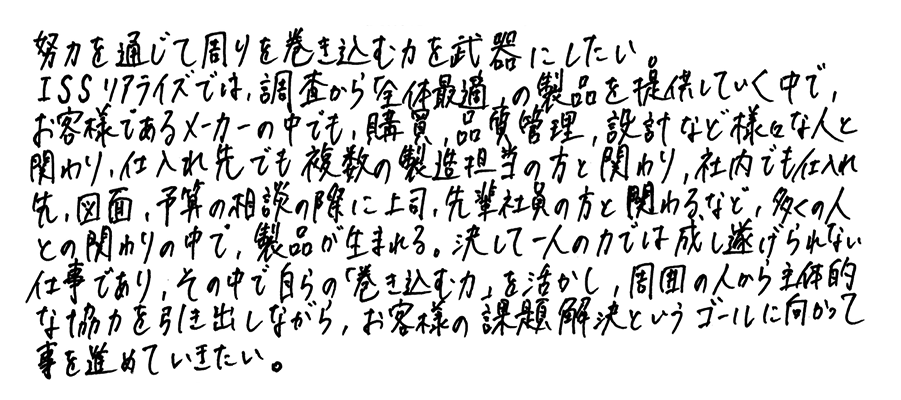 努力を通じて周りを巻き込む力を武器にしたい。
ISSリアライズでは、調査から「全体最適」の製品を提供していく中で、
お客様であるメーカーの中でも、購買、品質管理、設計など様々な人と
関わり、仕入れ先でも複数の製造担当の方と関わり、社内でも仕入れ
先、図面、予算の相談の際に上司、先輩社員の方と関わるなど、多くの人
との関わりの中で、製品が生まれる。決して一人の力では成し遂げられない
仕事であり、その中で自らの「巻き込む力」を活かし、周囲の人から主体的
な協力を引き出しながら、お客様の課題解決というゴールに向かって
事を進めていきたい。